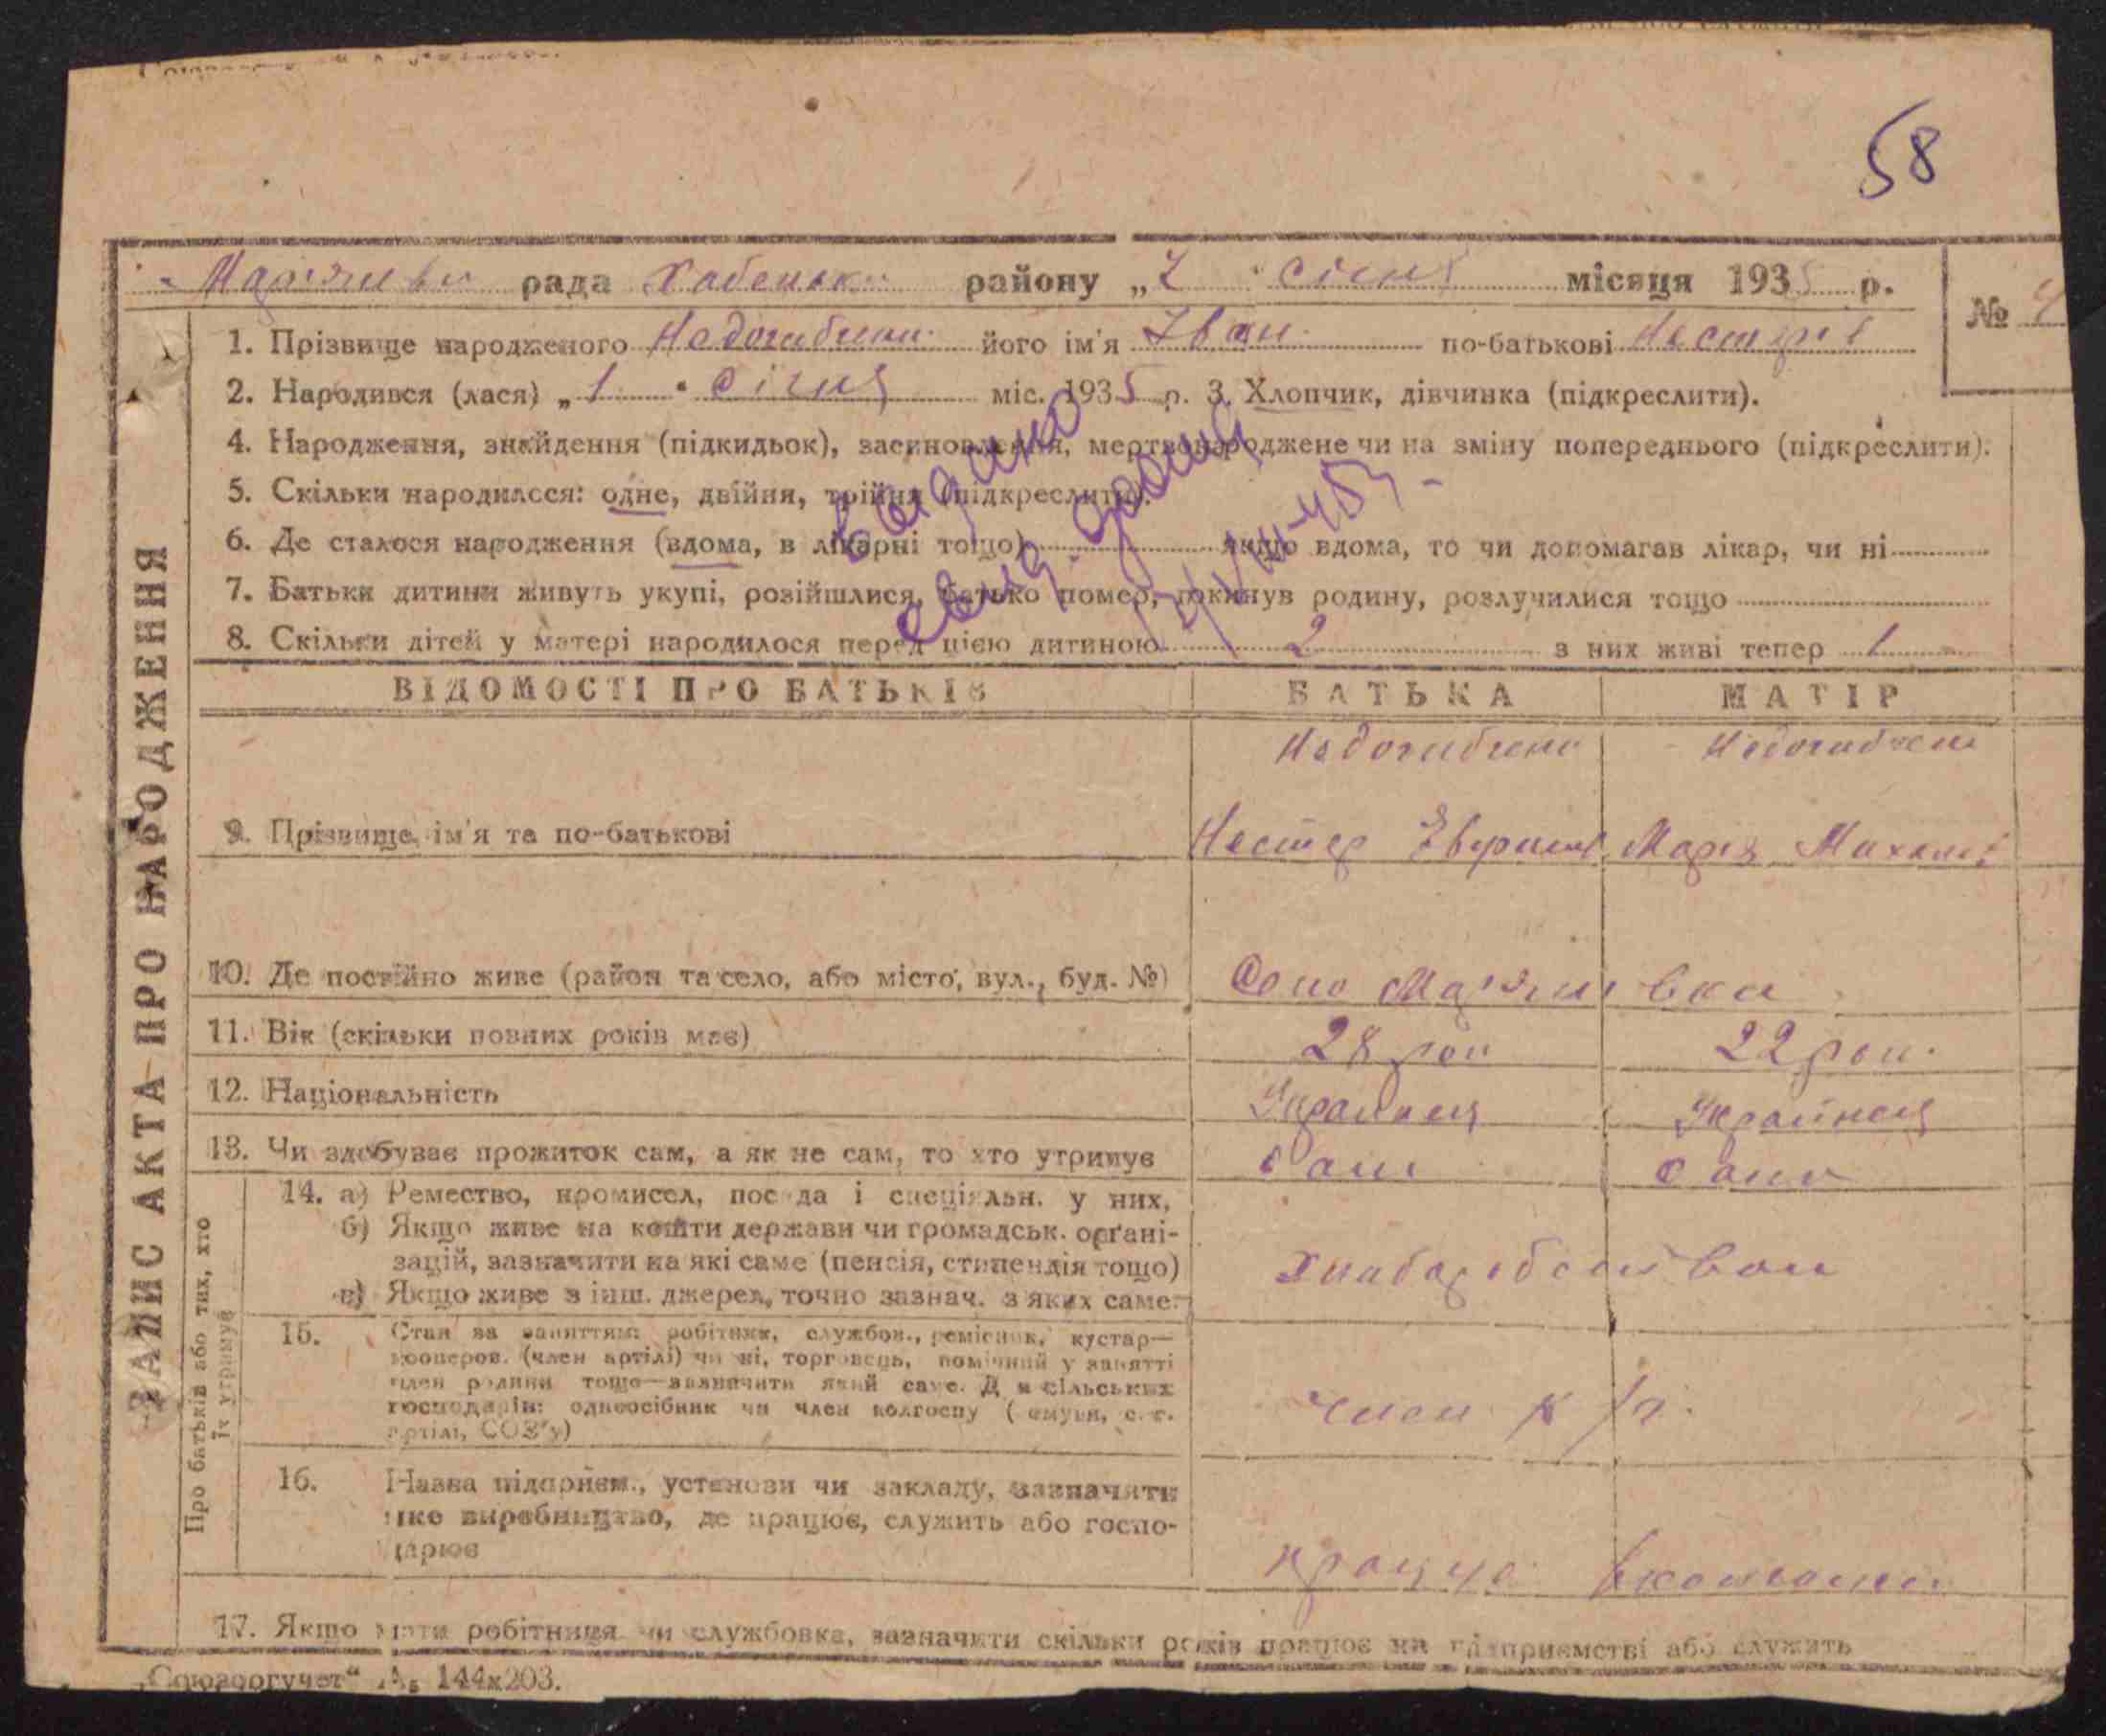 58
рада Хабенськ району „2 " січня місяця 1935 р.
№ 4
ЗАПИС АКТА ПРО НАРОДЖЕННЯ
1. Прізвище народженого його ім'я Іван по-батькові Нестерів
2. Народився (лася) „1 " січня міс. 1935 р. 3. Хлопчик, дівчинка (підкреслити).
4. Народження, знайдення (підкидьок), засиновлення, мертвонароджене чи на зміну попереднього (підкреслити).
5. Скільки народилося: одне, двійня, трійня (підкреслити).
6. Де сталося народження (вдома, в лікарні тощо) якщо вдома, то чи допомагав лікар, чи ні
7. Батьки дитини живуть укупі, розійшлися, батько помер, покинув родину, розлучилися тощо
8. Скільки дітей у матері народилося перед цією дитиною 2 з них живі тепер 1
ВІДОМОСТІ ПРО БАТЬКІВ БАТЬКА МАТІР
9. Прізвище, ім'я та по-батькові Нестер Марія
10. Де постійно живе (район та село, або місто, вул., буд. №) Село
11. Вік (скільки повних років має) 28 рок 22 рок.
12. Національність Українец Українец
13. Чи здобуває прожиток сам, а як не сам, то хто утримує сам сама
Про батьків або тих, хто їх утримує
14. а) Ремество, промисел, посада і спеціяльн. у них,
б) Якщо живе на кошти держави чи громадськ. орґані-
зацій, зазначити на які саме (пенсія, стипендія тощо)
в) Якщо живе з інш. джерел, точно зазнач. з яких саме.
15. Стан за заняттям: робітник, службов., ремісник, кустар—
кооперов. (член артілі) чи ні, торговець, помічний у занятті
член родини тощо—зазначити який саме. Для сільських
господарів: одноосібник чи член колгоспу (комуни, с.-г.
артілі, СОЗ'у)
член к/г.
16. Назва підприєм., установи чи закладу, зазначити
яке виробництво, де працює, служить або госпо-
дарює
працює
17. Якщо мати робітниця чи службовка, зазначити скільки років працює на підприємстві або служить
„Союзоргучет" 144x203.